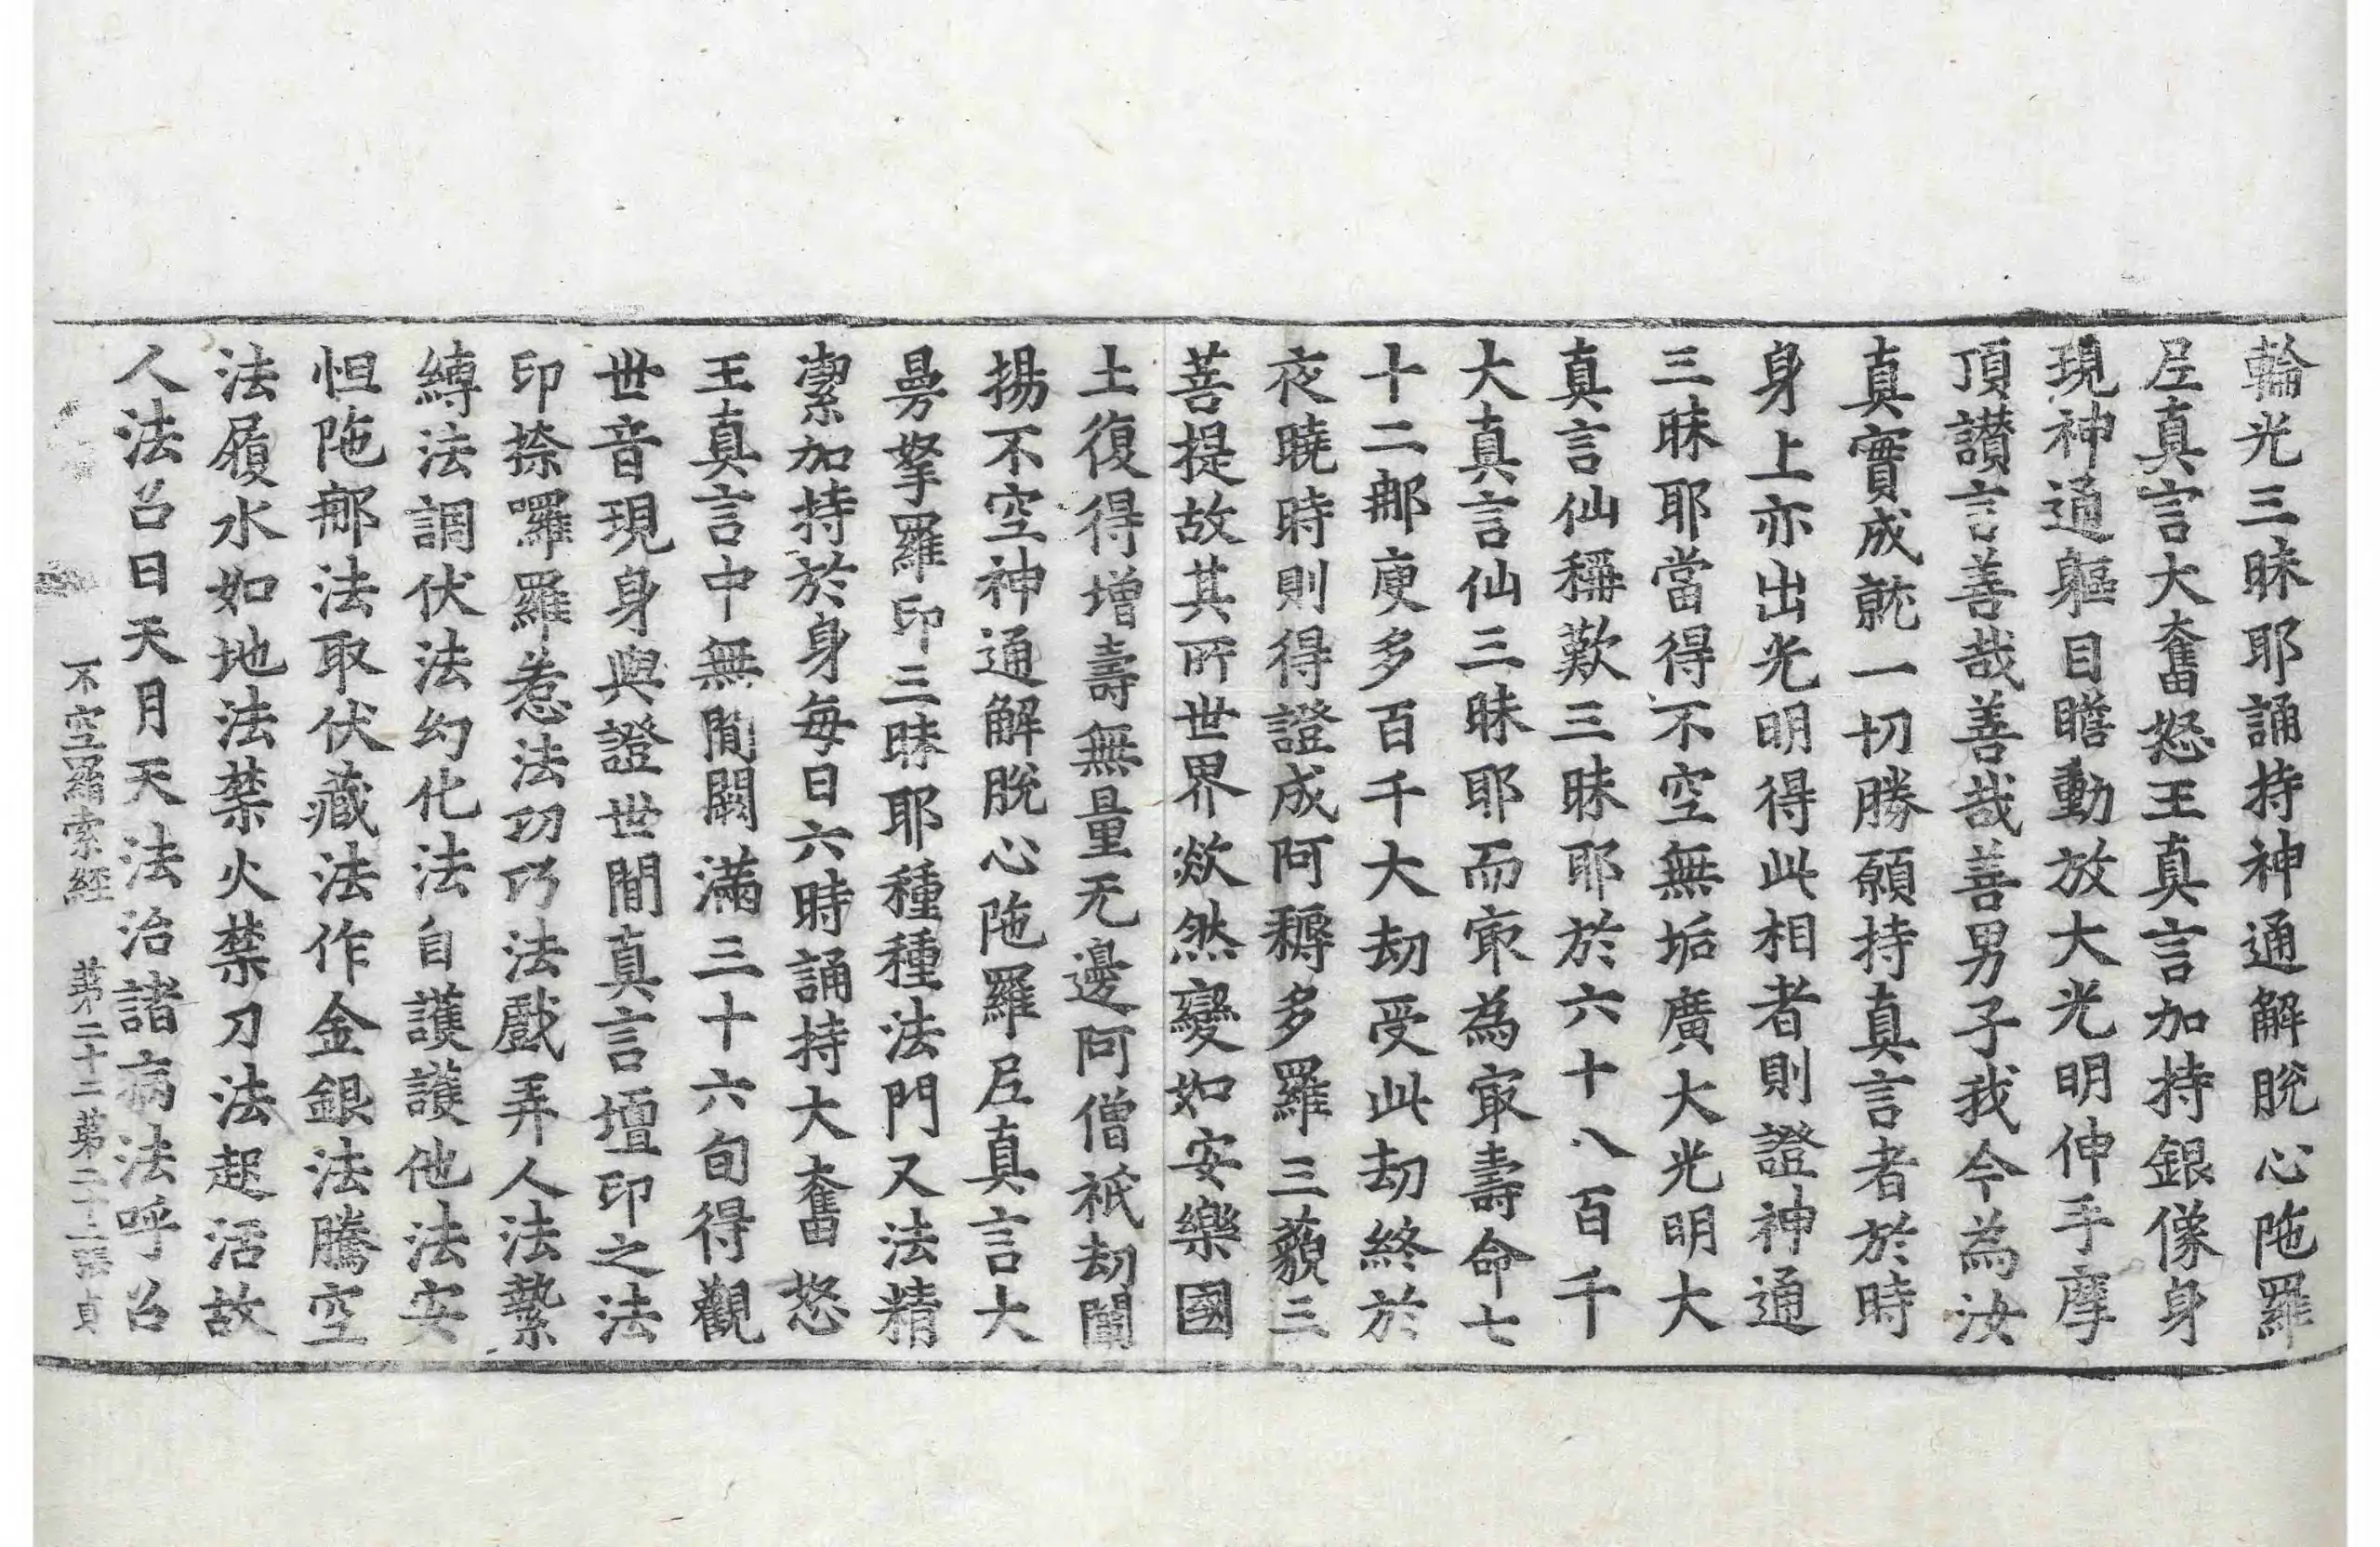 輪光三昧耶誦持神通解脫心陁羅
尼真言大奮怒王真言加持銀像身
現神通軀目瞻動放大光明伸手摩
頂讃言善哉善哉善男子我今為汝
真實成就一切勝願持真言者於時
身上亦出光明得此相者則證神通
三昧耶當得不空無垢廣大光明大
真言仙稱歎三昧耶於六十八百千
大真言仙三昧耶而㝡為㝡壽命七
十二那庾多百千大劫受此劫終於
夜曉時則得證成阿耨多羅三藐三
菩提故其所世界欻然變如安樂國
土復得增壽無量无邊阿僧祇劫闡
揚不空神通解脫心陁羅尼真言大
曼拏羅印三昧耶種種法門又法精
潔加持於身每日六時誦持大奮怒
王真言中無閒闕滿三十六旬得觀
世音現身與證世閒真言壇印之法
印捺囉羅惹法㓛巧法戲弄人法縶
縛法調伏法幻化法自護護他法安
怛陁那法取伏藏法作金銀法騰空
法履水如地法禁火禁刀法起活故
人法召日天月天法治諸病法呼召
不空羂索經 第二十二 第二十二張 貞